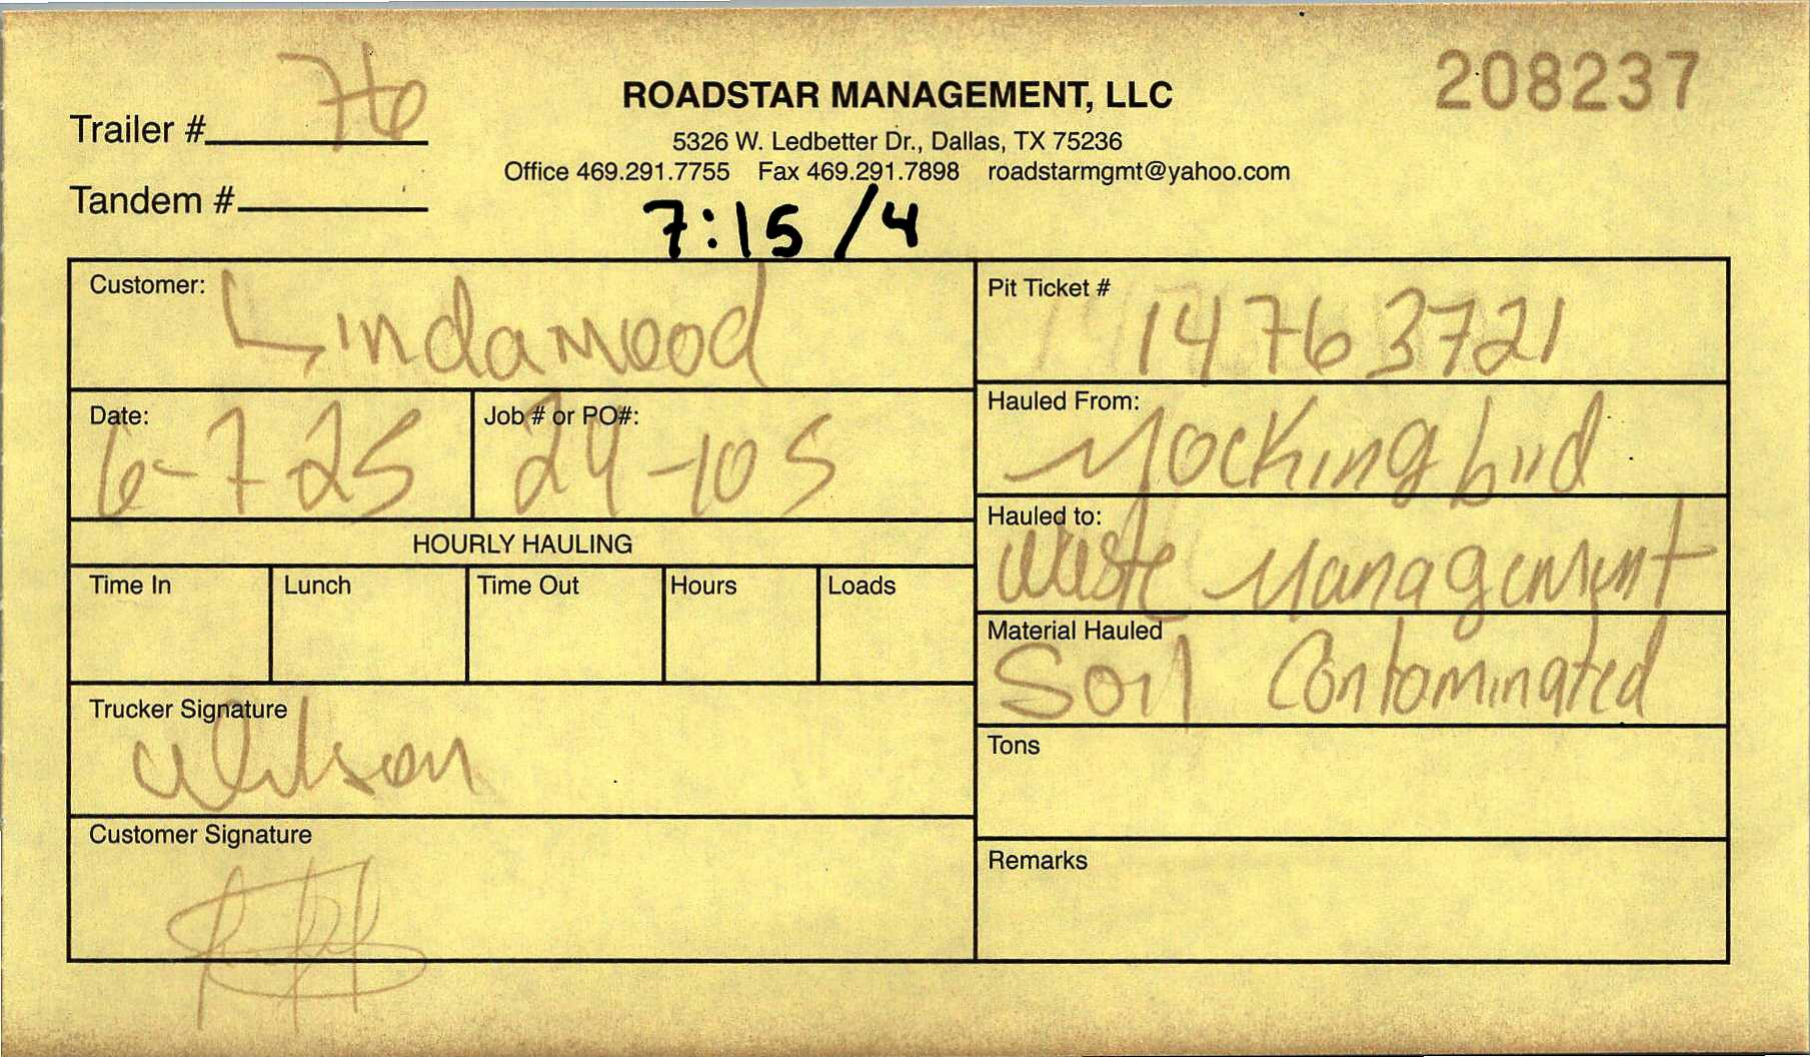 208237
Trailer # 76
ROADSTAR MANAGEMENT, LLC
5326 W. Ledbetter Dr., Dallas, TX 75236
Office 469.291.7755 Fax 469.291.7898 roadstarmgmt@yahoo.com
Tandem #
7:15 /4
Customer: Lindamood
Pit Ticket # 14763721
Date: 6-7-25
Job # or PO#: 24-105
Hauled From: Mockingbird
Hauled to: Waste Management
HOURLY HAULING
Time In Lunch Time Out Hours Loads
Material Hauled Soil Contominated
Trucker Signature Wilson
Tons
Customer Signature
Remarks